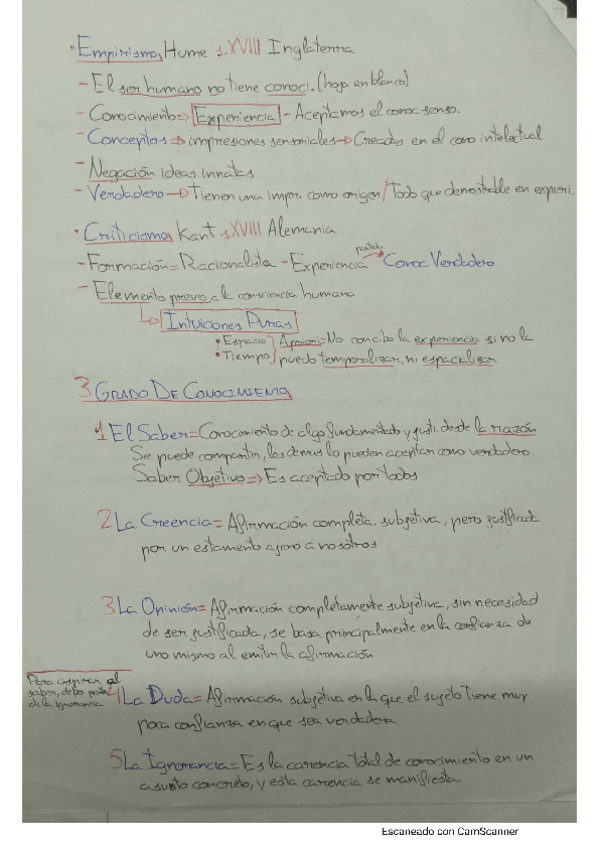 · Empirismo, Hume s.XVIII Inglaterra
- El ser humano no tiene conoci. (hoja en blanco)
- Conocimiento => Experiencia - Aceptamos el conoc senso.
- Conceptos => impresiones sensoriales -> Creadas en el cono intelectual
- Negación ideas innatas
- Verdadero -> Tienen una impr. como origen / Todo que demostrable en experi.
· Criticismo, Kant s.XVIII Alemania
- Formación = Racionalista - Experiencia Conoc. Verdadero
- Elemento previo a la consciencia humana
Intuiciones Puras
• Espacio } Apriori = No concibo la experiencia si no la
• Tiempo } puedo temporalizar, ni espacializar
3 GRADO DE CONOCIMIENTO
1 El Saber = Conocimiento de algo fundamentado y justi. desde la razón
Se puede compartir, los demas lo pueden aceptar como verdadero
Saber Objetivo => Es aceptado por todos
2 La Creencia = Afirmación completa. subjetiva, pero justificada
por un estamento ajeno a nosotros
3 La Opinión = Afirmación completamente subjetiva, sin necesidad
de ser justificada, se basa principalmente en la confianza de
uno mismo al emitir la afirmación
Para aspirar al
saber, debo partir
de la ignorancia
4 La Duda = Afirmación subjetiva en la que el sujeto tiene muy
poca confianza en que sea verdadera
5 La Ignorancia = Es la carencia total de conocimiento en un
asunto concreto, y esta carencia se manifiesta
Escaneado con CamScanner